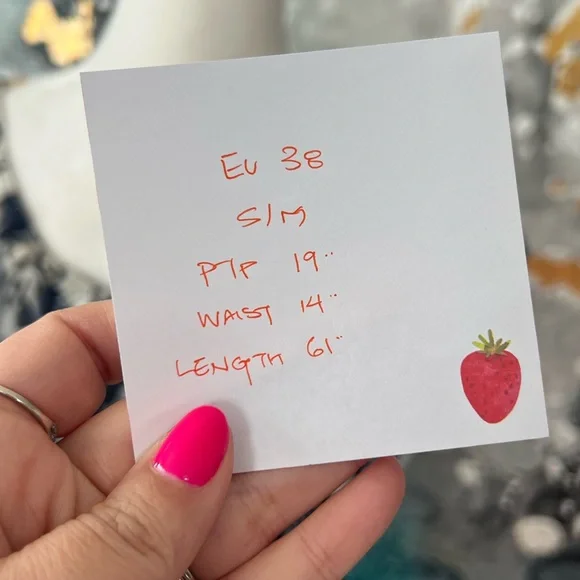 EU 38
S/M
PTP 19"
WAIST 14"
LENGTH 61"